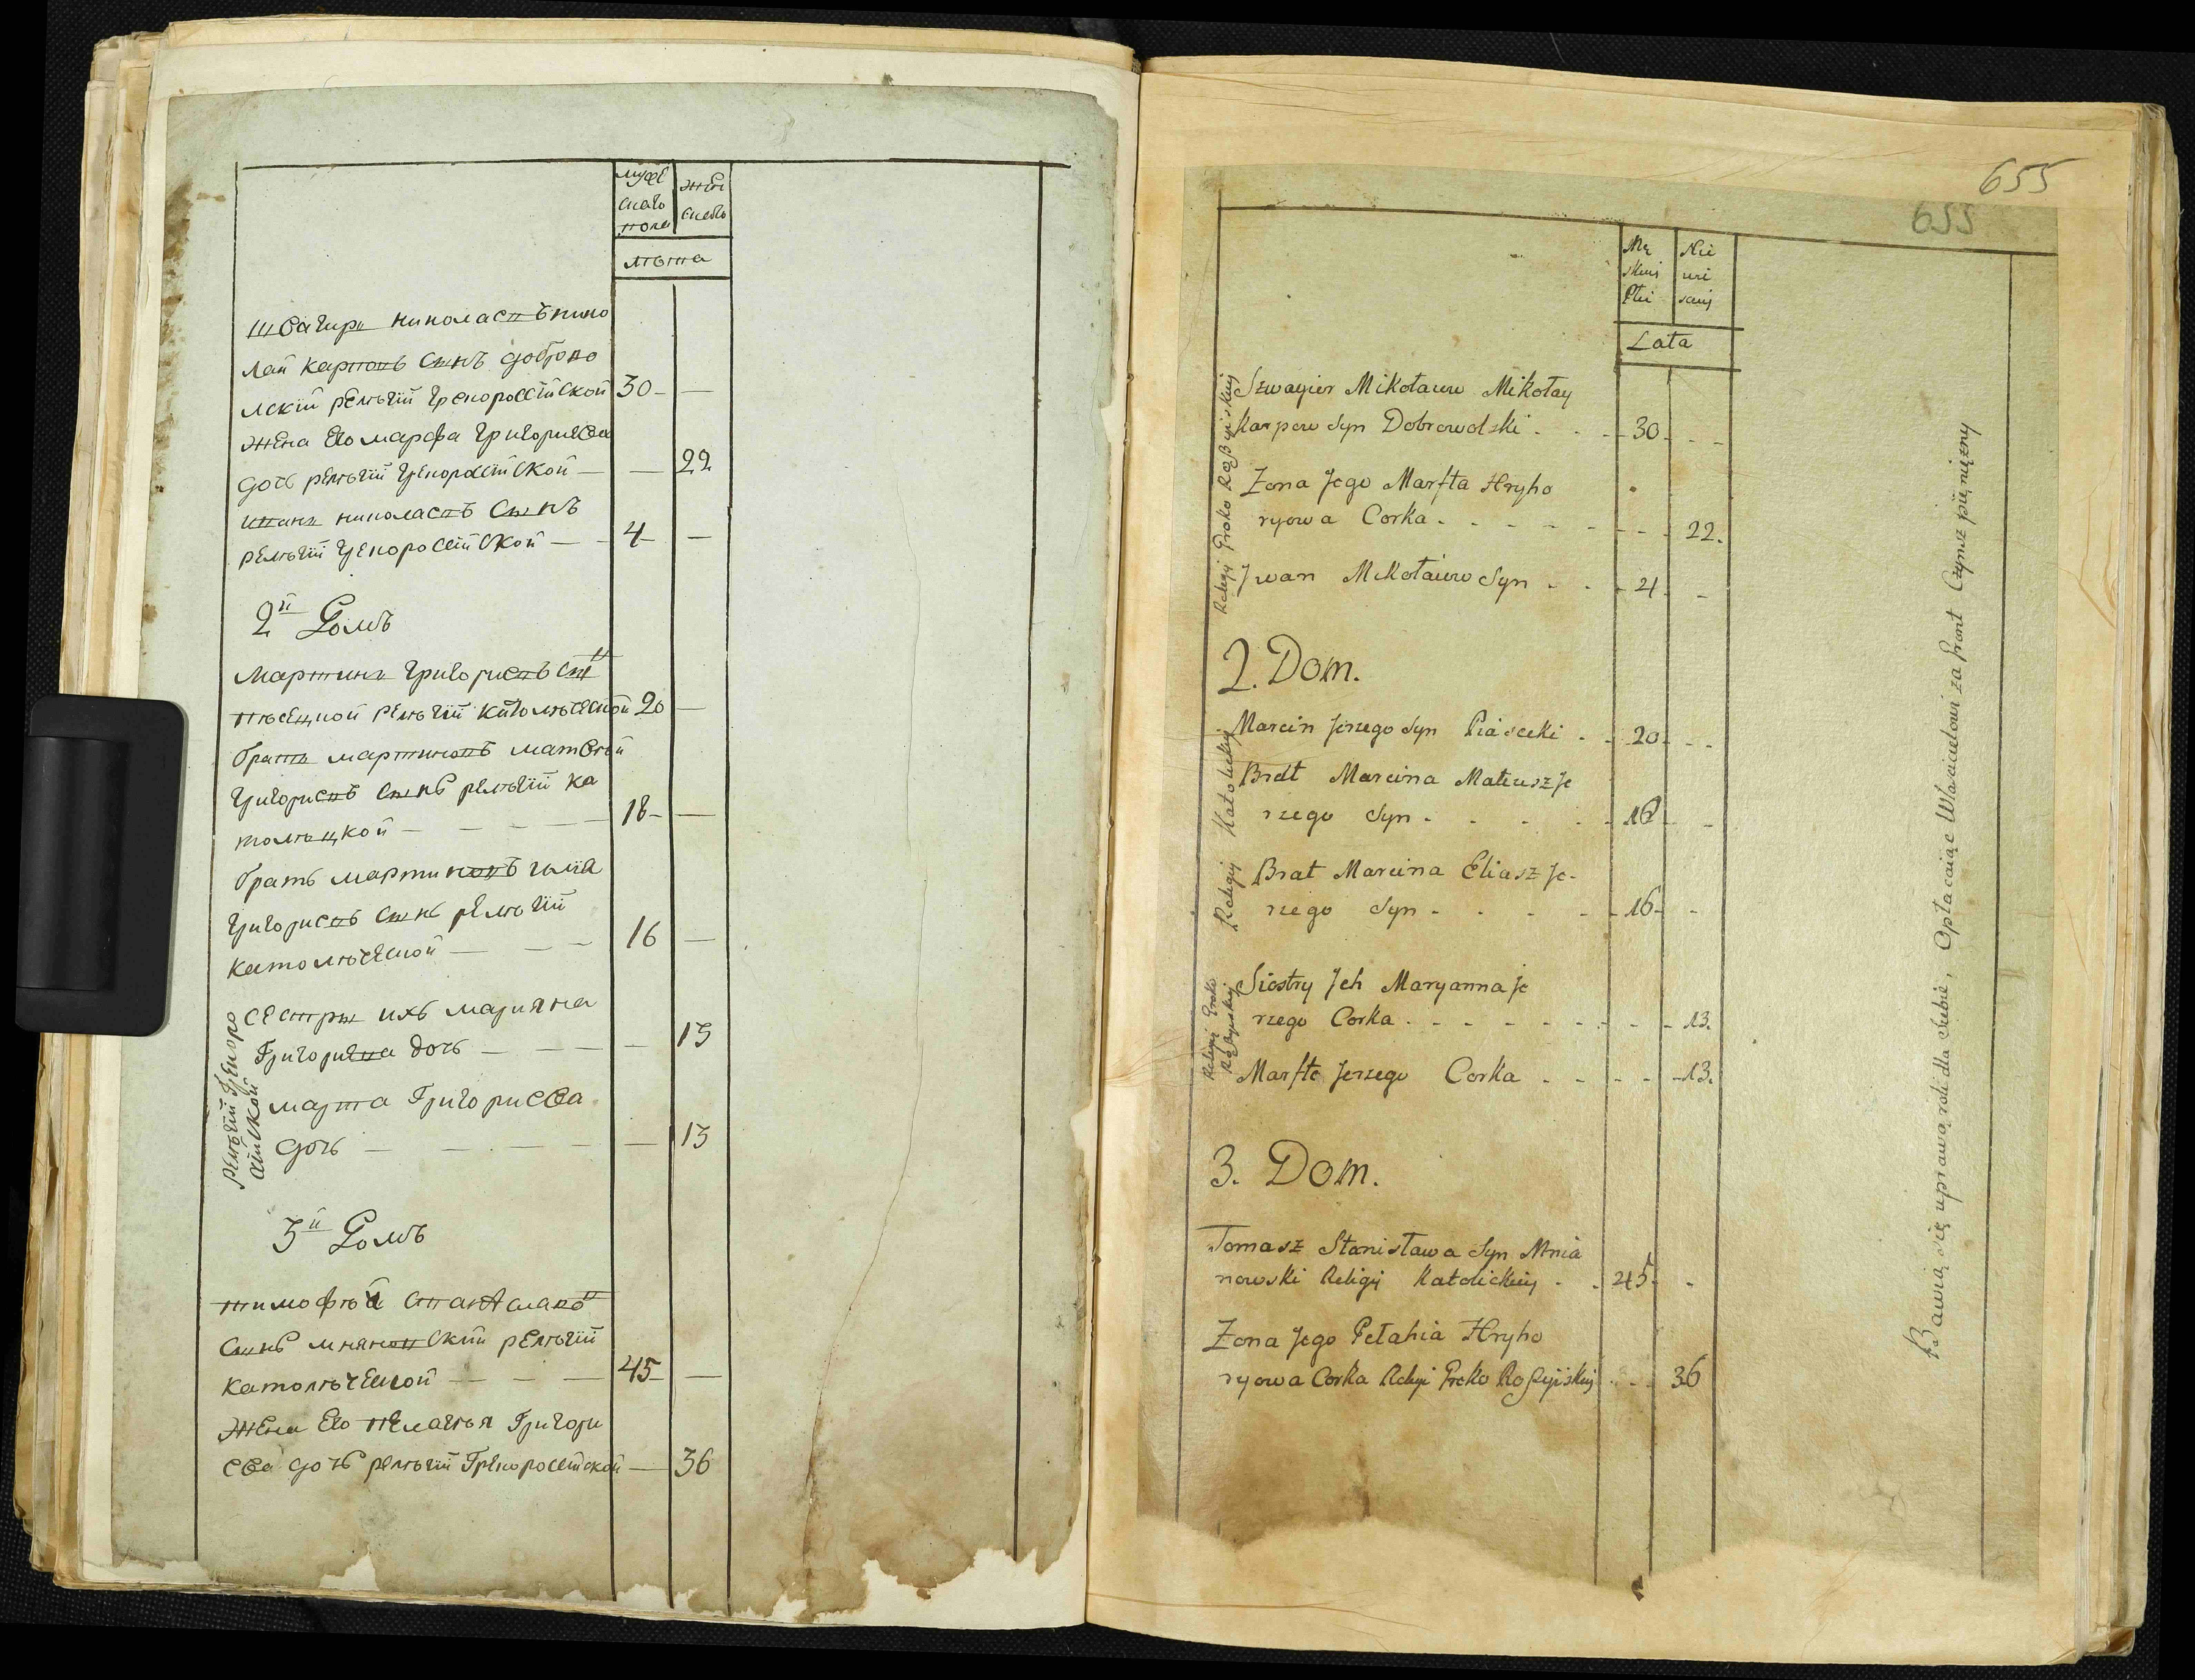 муже
скаго
пола
жен
скаго
лѣта
швагиръ николаевъ нико
лай карповъ сынъ доброво
лскій релѣгіи грекоросійской 30
жена Его марфа григориева
дочь релѣгіи грекоросійской — — 22
иванъ николаевъ сынъ
релѣгіи грекоросійской — 4 —
2й Домъ
мартинъ григориевъ сы
пѣсецкой релѣгіи католѣческой 20 —
братъ мартиновъ матвѣй
григориевъ сынъ релѣгіи ка
толѣцкой — 18 —
братъ мартиновъ илія
григориевъ сынъ релѣгіи
католѣческой — 16 —
сестры ихъ марияна
Григориена дочь — — 13
марта Григориева
дочь — — 13
релѣгіи Грекоро
сійской
3й Домъ
тимофѣй станславовъ
сынъ мняновскій релѣгіи
католѣческой — 45 —
Жена Его пелагѣя Григори
ева дочь релѣгіи Грекоросійской — 36
655
655
Mę
skiej
Płci
Nie
wie
sciej
Lata
Szwagier Mikołaiew Mikołay
Karpow Syn Dobrowolski - 30 -
Zona Jego Marfta Hryho
ryowa Corka - - 22.
Jwan Mikołaiew Syn - 4 -
Religij Greko Roßyiskiej
2. Dom.
Marcin Jerzego Syn Piasecki - 20 -
Brat Marcina Mateusz Je
rzego Syn - 18 -
Brat Marcina Eliasz Je-
rzego Syn - 16 -
Religij Katolickiej
Siostry Jch Maryanna Je
rzego Corka - - 13.
Marfta Jerzego Corka - - 13.
Religij Greko
Roßyiskiej
3. Dom.
Tomasz Stanisława Syn Mnia
nowski Religij Katolickiej - 45 -
Zona Jego Pełahia Hryho
ryowa Corka Religi Greko Roßyiskiej - 36
Bawią się uprawą roli dla Siebie, Opłacaiąc Własicielowi za Grunt Czynsz pięniężny